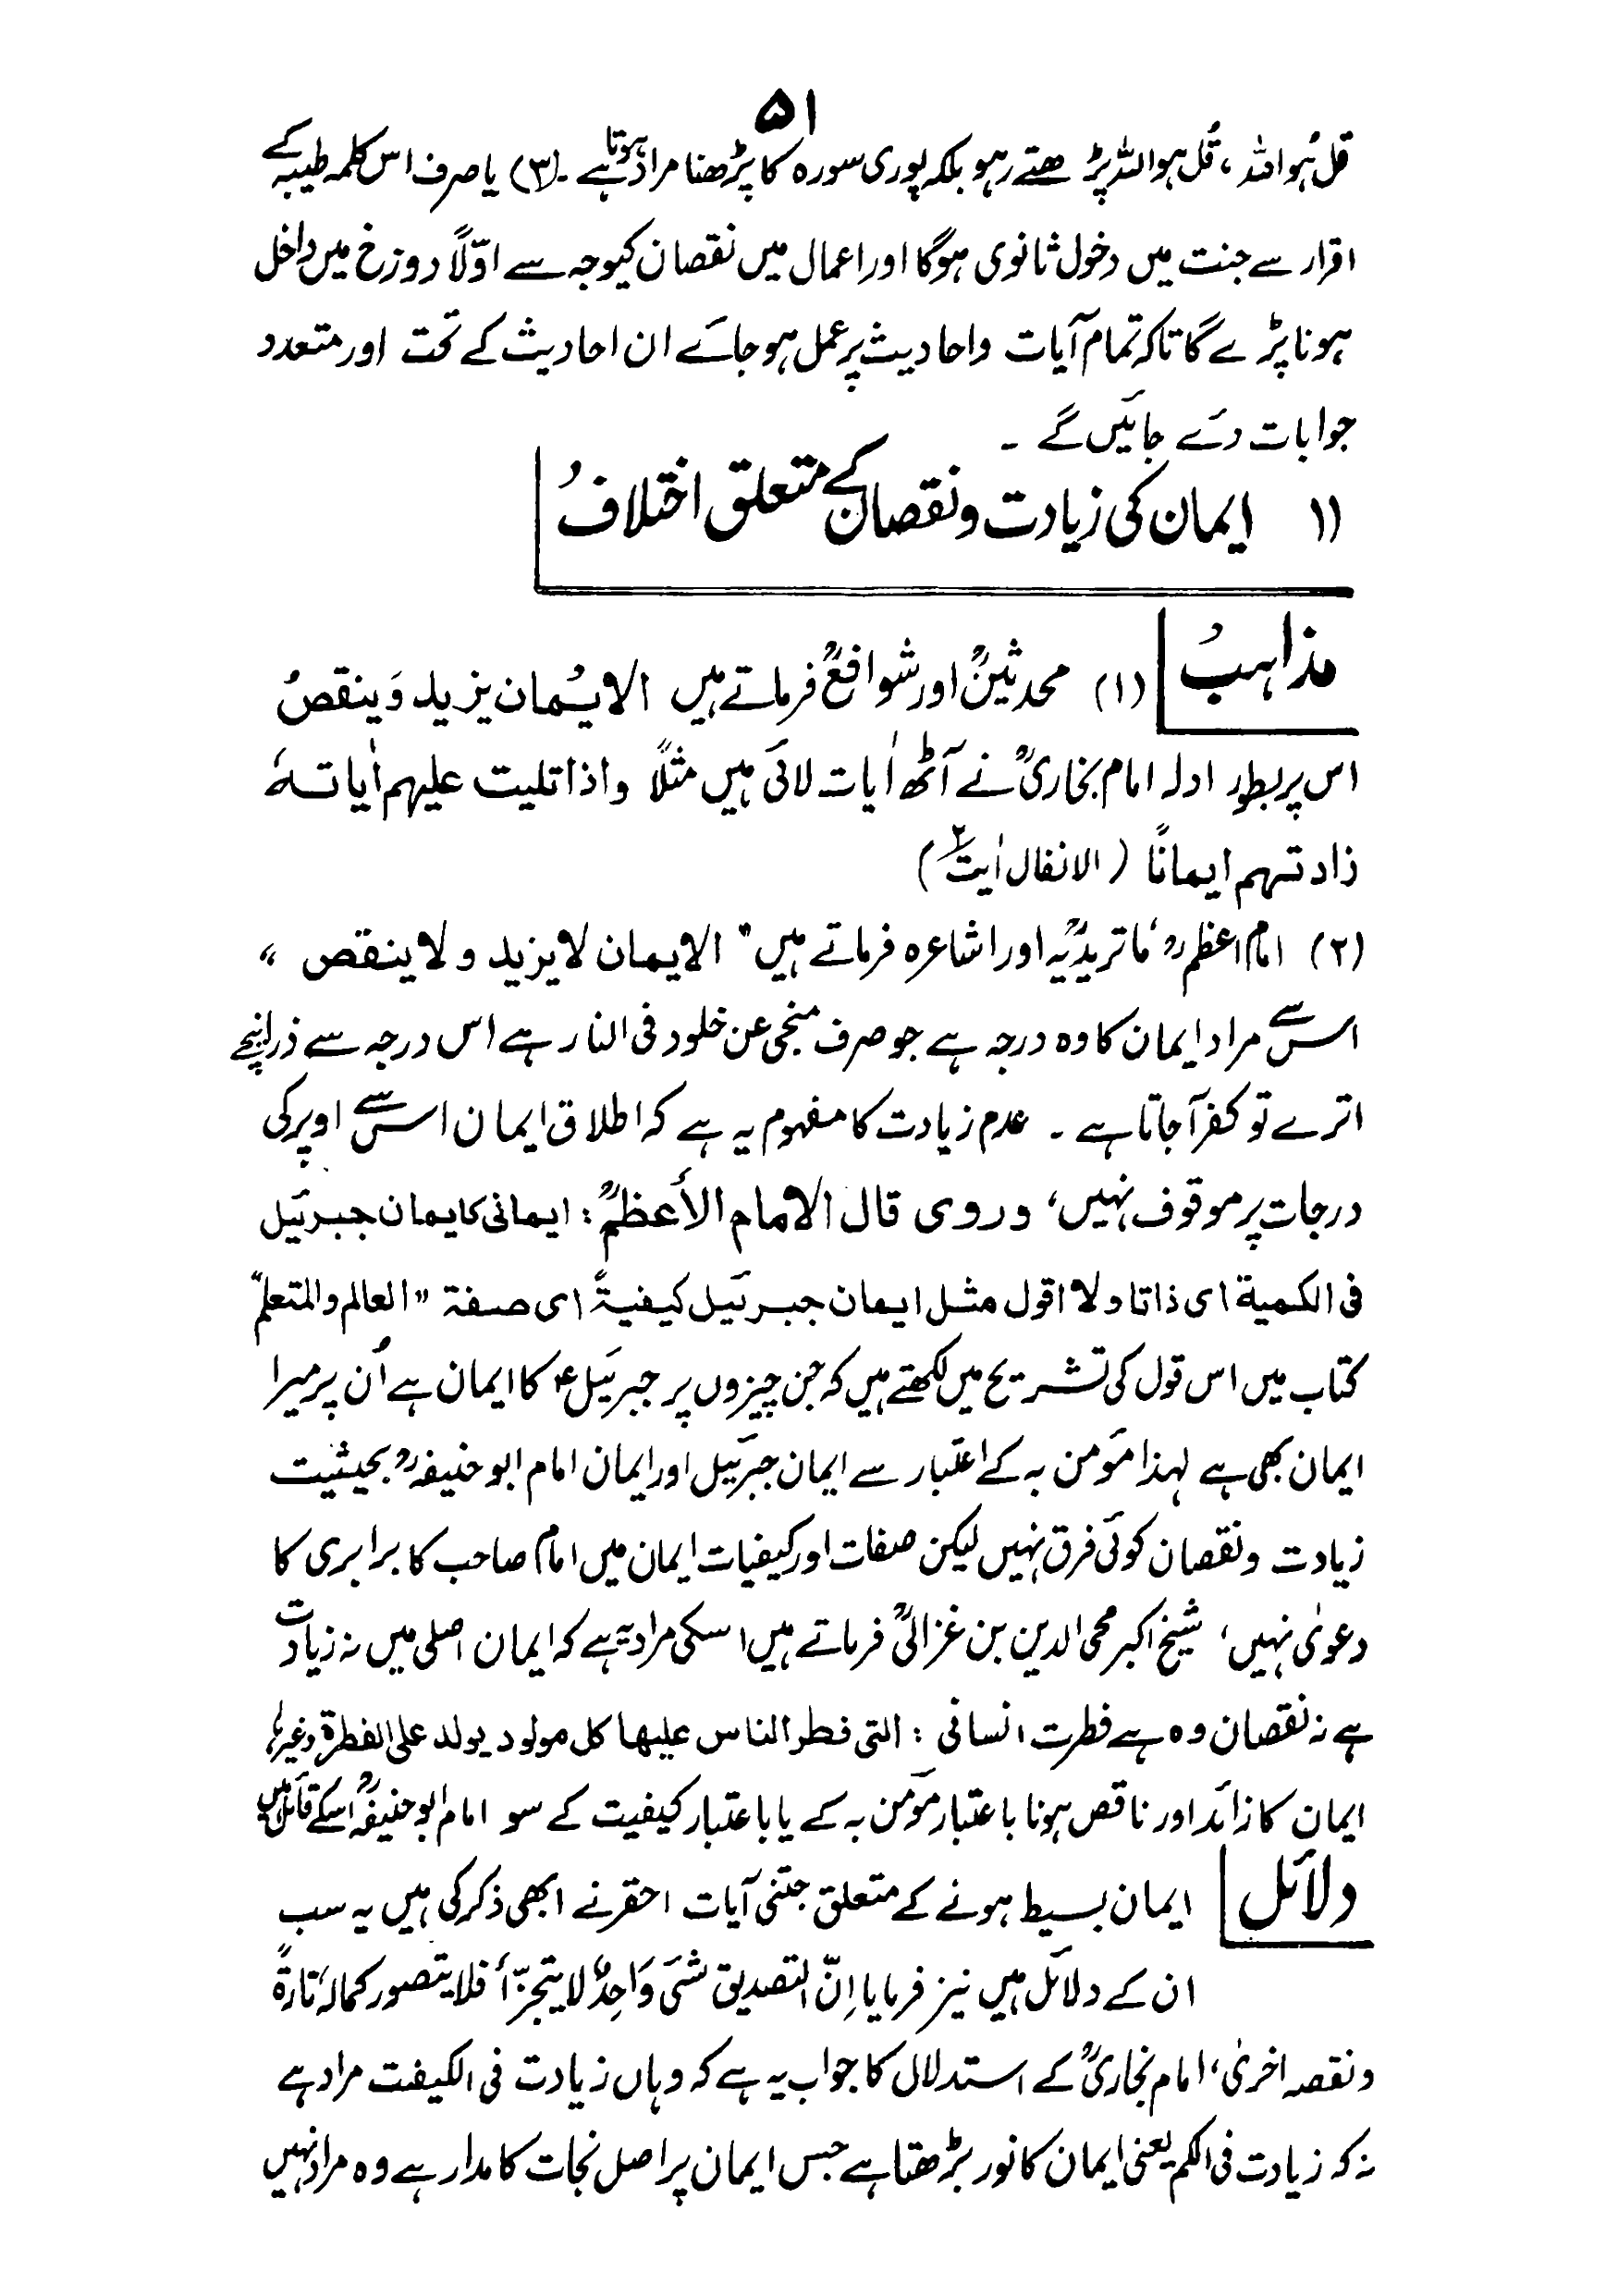 ۵۱
قل ہُو اللہ ، قُل ہو اللہ پڑھتے رہو بلکہ پوری سورہ کا پڑھنا مراد ہوتا ہے ۔ (۳) یا صرف اس کلمہ طیبہ کے
اقرار سے جنت میں دخول ثانوی ہوگا اور اعمال میں نقصان کیوجہ سے اوّلاً دوزخ میں داخل
ہونا پڑے گا تاکہ تمام آیات واحادیث پر عمل ہوجائے ان احادیث کے تحت اور متعدد
جوابات دئے جائیں گے ۔
۱۱ ایمان کی زیادت ونقصان کے متعلق اختلافُ
مذاہبُ (۱) محدثینؒ اور شوافعؒ فرماتے ہیں الایُمان یزید وَینقصُ
اس پر بطور ادلہ امام بخاریؒ نے آٹھ اٰیات لائی ہیں مثلاً واذا تلیت علیہم اٰیاتہٗ
زادتہم ایماناً (الانفال اٰیت۲)
(۲) امام اعظمؒ، ماتریدیّہ اور اشاعرہ فرماتے ہیں "الایمان لا یزید ولا ینقص"
اس سے مراد ایمان کا وہ درجہ ہے جو صرف منجی عن خلود فی النار ہے اس درجہ سے ذرا نیچے
اترے تو کفر آجاتا ہے ۔ عدم زیادت کا مفہوم یہ ہے کہ اطلاق ایمان اس سے اوپر کی
درجات پر موقوف نہیں، وروی قال الامام الأعظمؒ: ایمانی کایمان جبرئیل
فی الکمیۃ ای ذاتا ولا اقول مثل ایمان جبرئیل کیفیۃً ای صفۃ "العالم والمتعلم"
کتاب میں اس قول کی تشریح میں لکھتے ہیں کہ جن چیزوں پر جبرئیلؑ کا ایمان ہے اُن پر میرا
ایمان بھی ہے لہذا مؤمن بہ کے اعتبار سے ایمان جبرئیل اور ایمان امام ابو حنیفہؒ بحیثیت
زیادت ونقصان کوئی فرق نہیں لیکن صفات اور کیفیات ایمان میں امام صاحب کا برابری کا
دعویٰ نہیں، شیخ اکبر محی الدین بن غزالیؒ فرماتے ہیں اسکی مراد یہ ہے کہ ایمان اصلی میں نہ زیادت
ہے نہ نقصان وہ ہے فطرت انسانی : التی فطر الناس علیہا کل مولود یولد علی الفطرۃ وغیرہا
ایمان کا زائد اور ناقص ہونا باعتبار مؤمن بہ کے یا باعتبار کیفیت کے سو امام ابو حنیفہؒ اسکے قائل ہیں
دلائل ایمان بسیط ہونے کے متعلق جتنی آیات احقر نے ابھی ذکر کی ہیں یہ سب
ان کے دلائل ہیں نیز فرمایا اِنّ التصدیق شئ وَاحِدٌ لا یتجزّأ فلا یتصور کمالہٗ تارۃً
ونقصہ اخریٰ، امام بخاریؒ کے استدلال کا جواب یہ ہے کہ وہاں زیادت فی الکیفت مراد ہے
نہ کہ زیادت فی الکم یعنی ایمان کا نور بڑھتا ہے جس ایمان پر اصل نجات کا مدار ہے وہ مراد نہیں